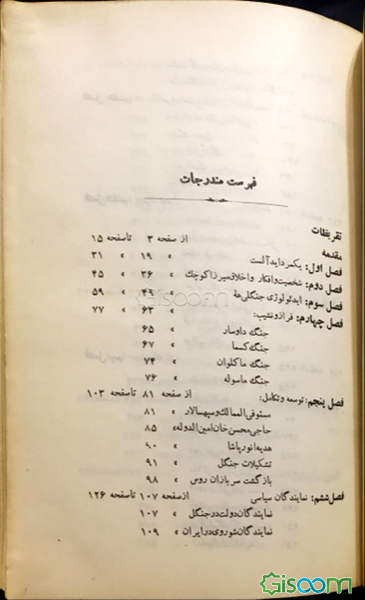 فهرست مندرجات
تقریظات از صفحه ۳ تا صفحه ۱۵
مقدمه » ۱۹ » ۳۱
فصل اول: یکمرد ایدآلست » ۳۶ » ۴۵
فصل دوم: شخصیت و افکار و اخلاق میرزا کوچک » ۴۹ » ۵۹
فصل سوم: ایدئولوژی جنگلی‌ها » ۶۳ » ۷۷
فصل چهارم: فراز و نشیب:
جنگ داوسار » ۶۵
جنگ کسما » ۶۷
جنگ ماکلوان » ۷۴
جنگ ماسوله » ۷۶
فصل پنجم: توسعه و تکامل: از صفحه ۸۱ تا صفحه ۱۰۳
مستوفی‌الممالک و سپهسالار » ۸۱
حاجی محسن خان امین الدوله » ۸۵
هدیه انور پاشا » ۹۰
تشکیلات جنگل » ۹۱
بازگشت سربازان روس » ۹۸
فصل ششم: نمایندگان سیاسی از صفحه ۱۰۷ تا صفحه ۱۲۶
نمایندگان دولت در جنگل » ۱۰۷
نمایندگان شوروی در ایران » ۱۰۹
Gisoom
گیسوم